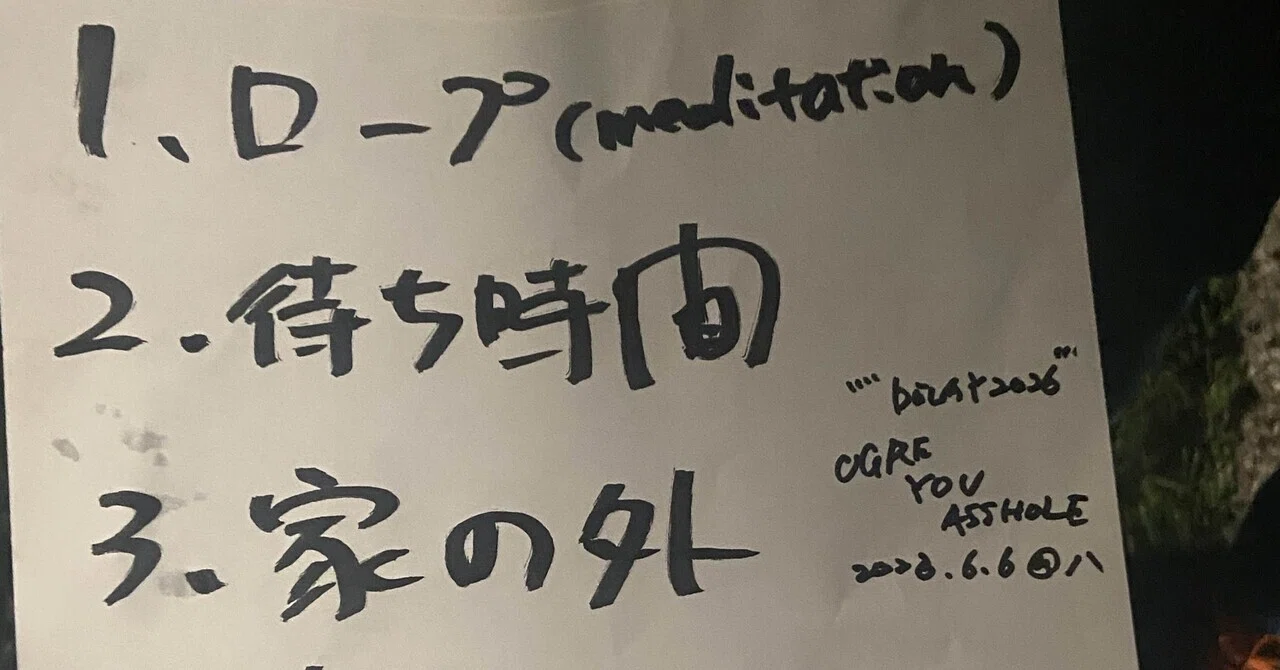 1、ロープ(meditation)
2.待ち時間
3.家の外
2026
OGRE
YOU
ASSHOLE
6.6